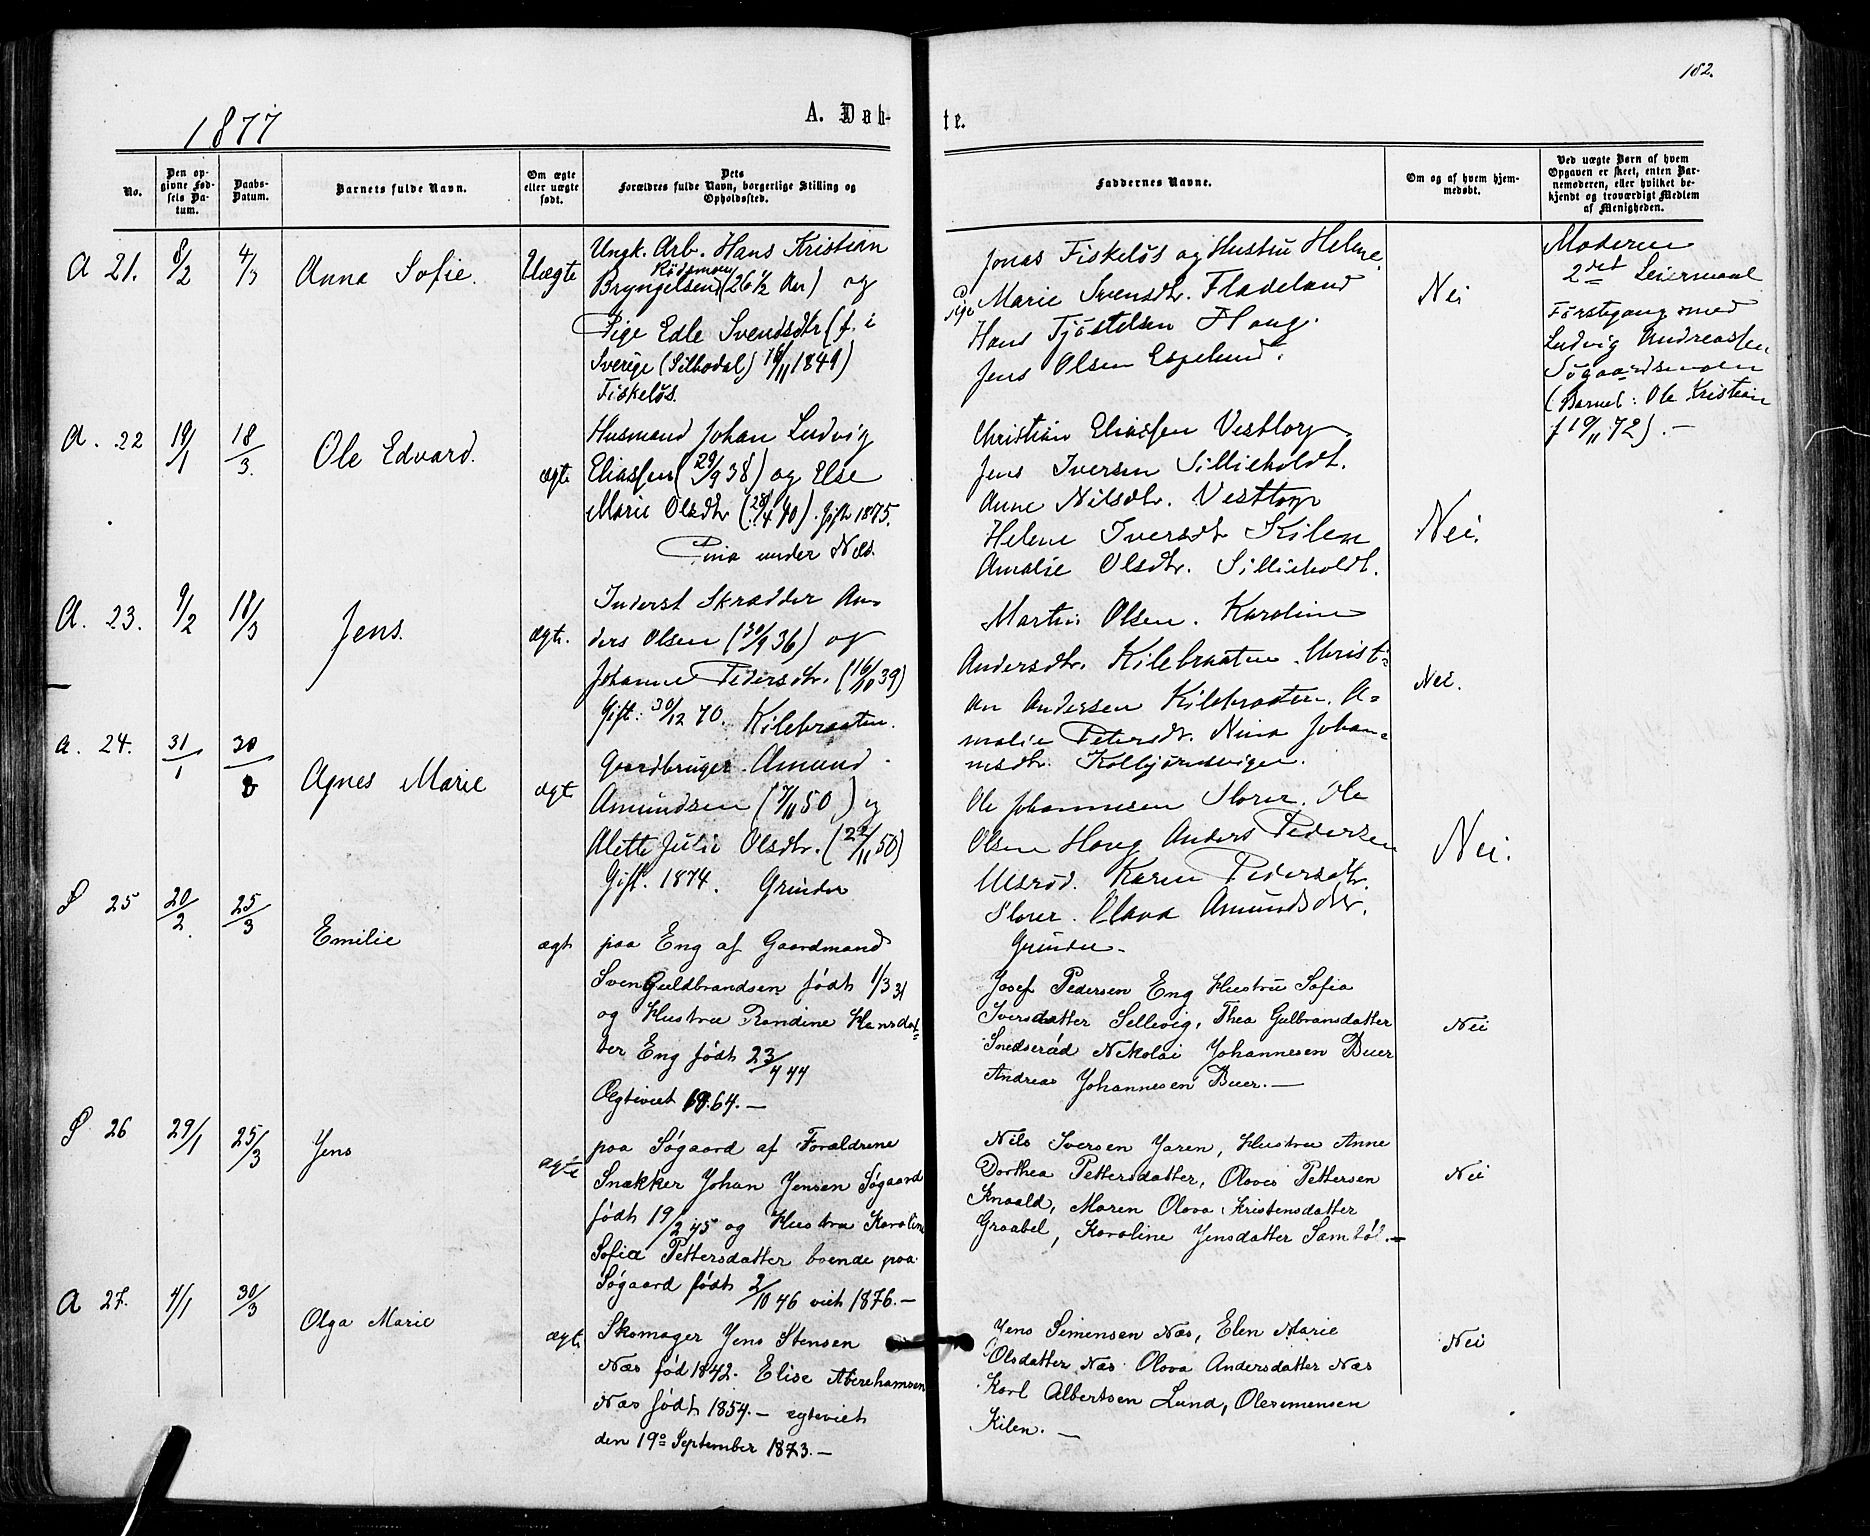 182.
1877
A. Døb-
te.
No.
Den op-
givne Fød-
sels Da-
tum.
Daabs-
Datum.
Barnets fulde Navn.
Om ægte
eller uægte
født.
Dets
Forældres fulde Navn, borgerlige Stilling og
Opholdssted.
Faddernes Navne.
Om og af hvem hjem-
medøbt.
Ved uægte Børn af hvem
Opgaven er skeet, enten Bar-
nemoderen, eller hvilket be-
kjendt og troværdigt Medlem
af Menigheden.
A 21. 8/2 4/3 Anna Sofie. Uægte
Ungk. Arb. Hans Kristian
Rødsmoen
Bryngelsen (26 1/2 Aar) og
Pige Edle Svendsdtr (f. i
Sverige (Silbodal) 16/11 1849)
Fiskeløs.
Jonas Fiskeløs og Hustru Helene.
Pige Marie Svensdtr. Fladeland
Hans Tjøstelsen Haug.
Jens Olsen Espelund.
Nei
Moderen
2det Leiermaal
Førstegang med
Ludvig Andreassen
Søgaardsmoen
(Barnet: Ole Kristian
f 19/11 72). —
A. 22 19/1 18/3. Ole Edvard. ægte
Husmand Johan Ludvig
Eliassen (29/9 38) og Else
Marie Olsdtr (28/4 40). Gift 1875.
under Næs.
Christian Eliassen Vestlorp
Jens Iversen Sillieholdt.
Anne Nilsdtr. Vesttorp
Helene Iversdtr Kilen
Amalie Olsdtr. Sillieholdt.
Nei.
A. 23. 9/2 18/3 Jens. ægte.
Inderst Skrædder An-
ders Olsen (30/9 36) og
Johanne Pedersdtr. (16/10 39)
Gift: 30/12 70. Kilebraaten.
Martin Olsen. Karoline
Andersdtr. Kilebraaten. Christi-
an Andersen Kilebraaten. A-
malie Petersdt. Nina Johan-
nesdtr. Kolbjørnsvigen.
Nei.
A. 24. 31/1 30/ Agnes Marie ægt
Gaardbruger Amund
Amundsen ( /11 50) og
Alette Julie Olsdtr. (22/11 50)
Gift. 1874. Grinder
Ole Johannesen Storer. Ole
Olsen Haug Anders Pedersen
Ulsrød. Karen Pedersdtr.
Storer. Olava Amundsdtr.
Grinder —
Nei.
S 25 20/2. 25/3 Emilie ægt
paa Eng af Gaardmand
Sven Guldbrandsen født 1/3 31
og Hustru Randine Hansdat-
ter Eng født 23/4 44
Ægteviet 1864. —
Josef Pedersen Eng Hustru Sofia
Iversdatter Sellevig, Thea Gulbransdatter
Snedserød Nekolai Johannesen Buer
Andreas Johannesen Buer. —
Nei
S 26 29/1 25/3 Jens ægte
paa Søgaard af Forældrene
Snækker Johan Jensen Søgaard
født 19/2 45 og Hustru Karoline
Sofia Pettersdatter boende paa
Søgaard født 2/10 46 viet 1876. —
Nils Iversen Jaren, Hustru Anne
Dorthea Pettersdatter, Olaves Pettersen
Knaald, Maren Olava Kristensdatter
Graabøl, Karoline Jensdatter Sambøl. —
Nei
A 27. 4/1 30/3 Olga Marie ægt
Skomager Jens Stensen
Næs fød 1842. Elise Aberehamsen
Næs født 1854. — egteviet
den 19o September 1873. —
Jens Simensen Næs, Elen Marie
Olsdatter Næs Olava Andersdatter Næs
Karl Albertsen Lund, Olesimensen
Kilen. —
Nei